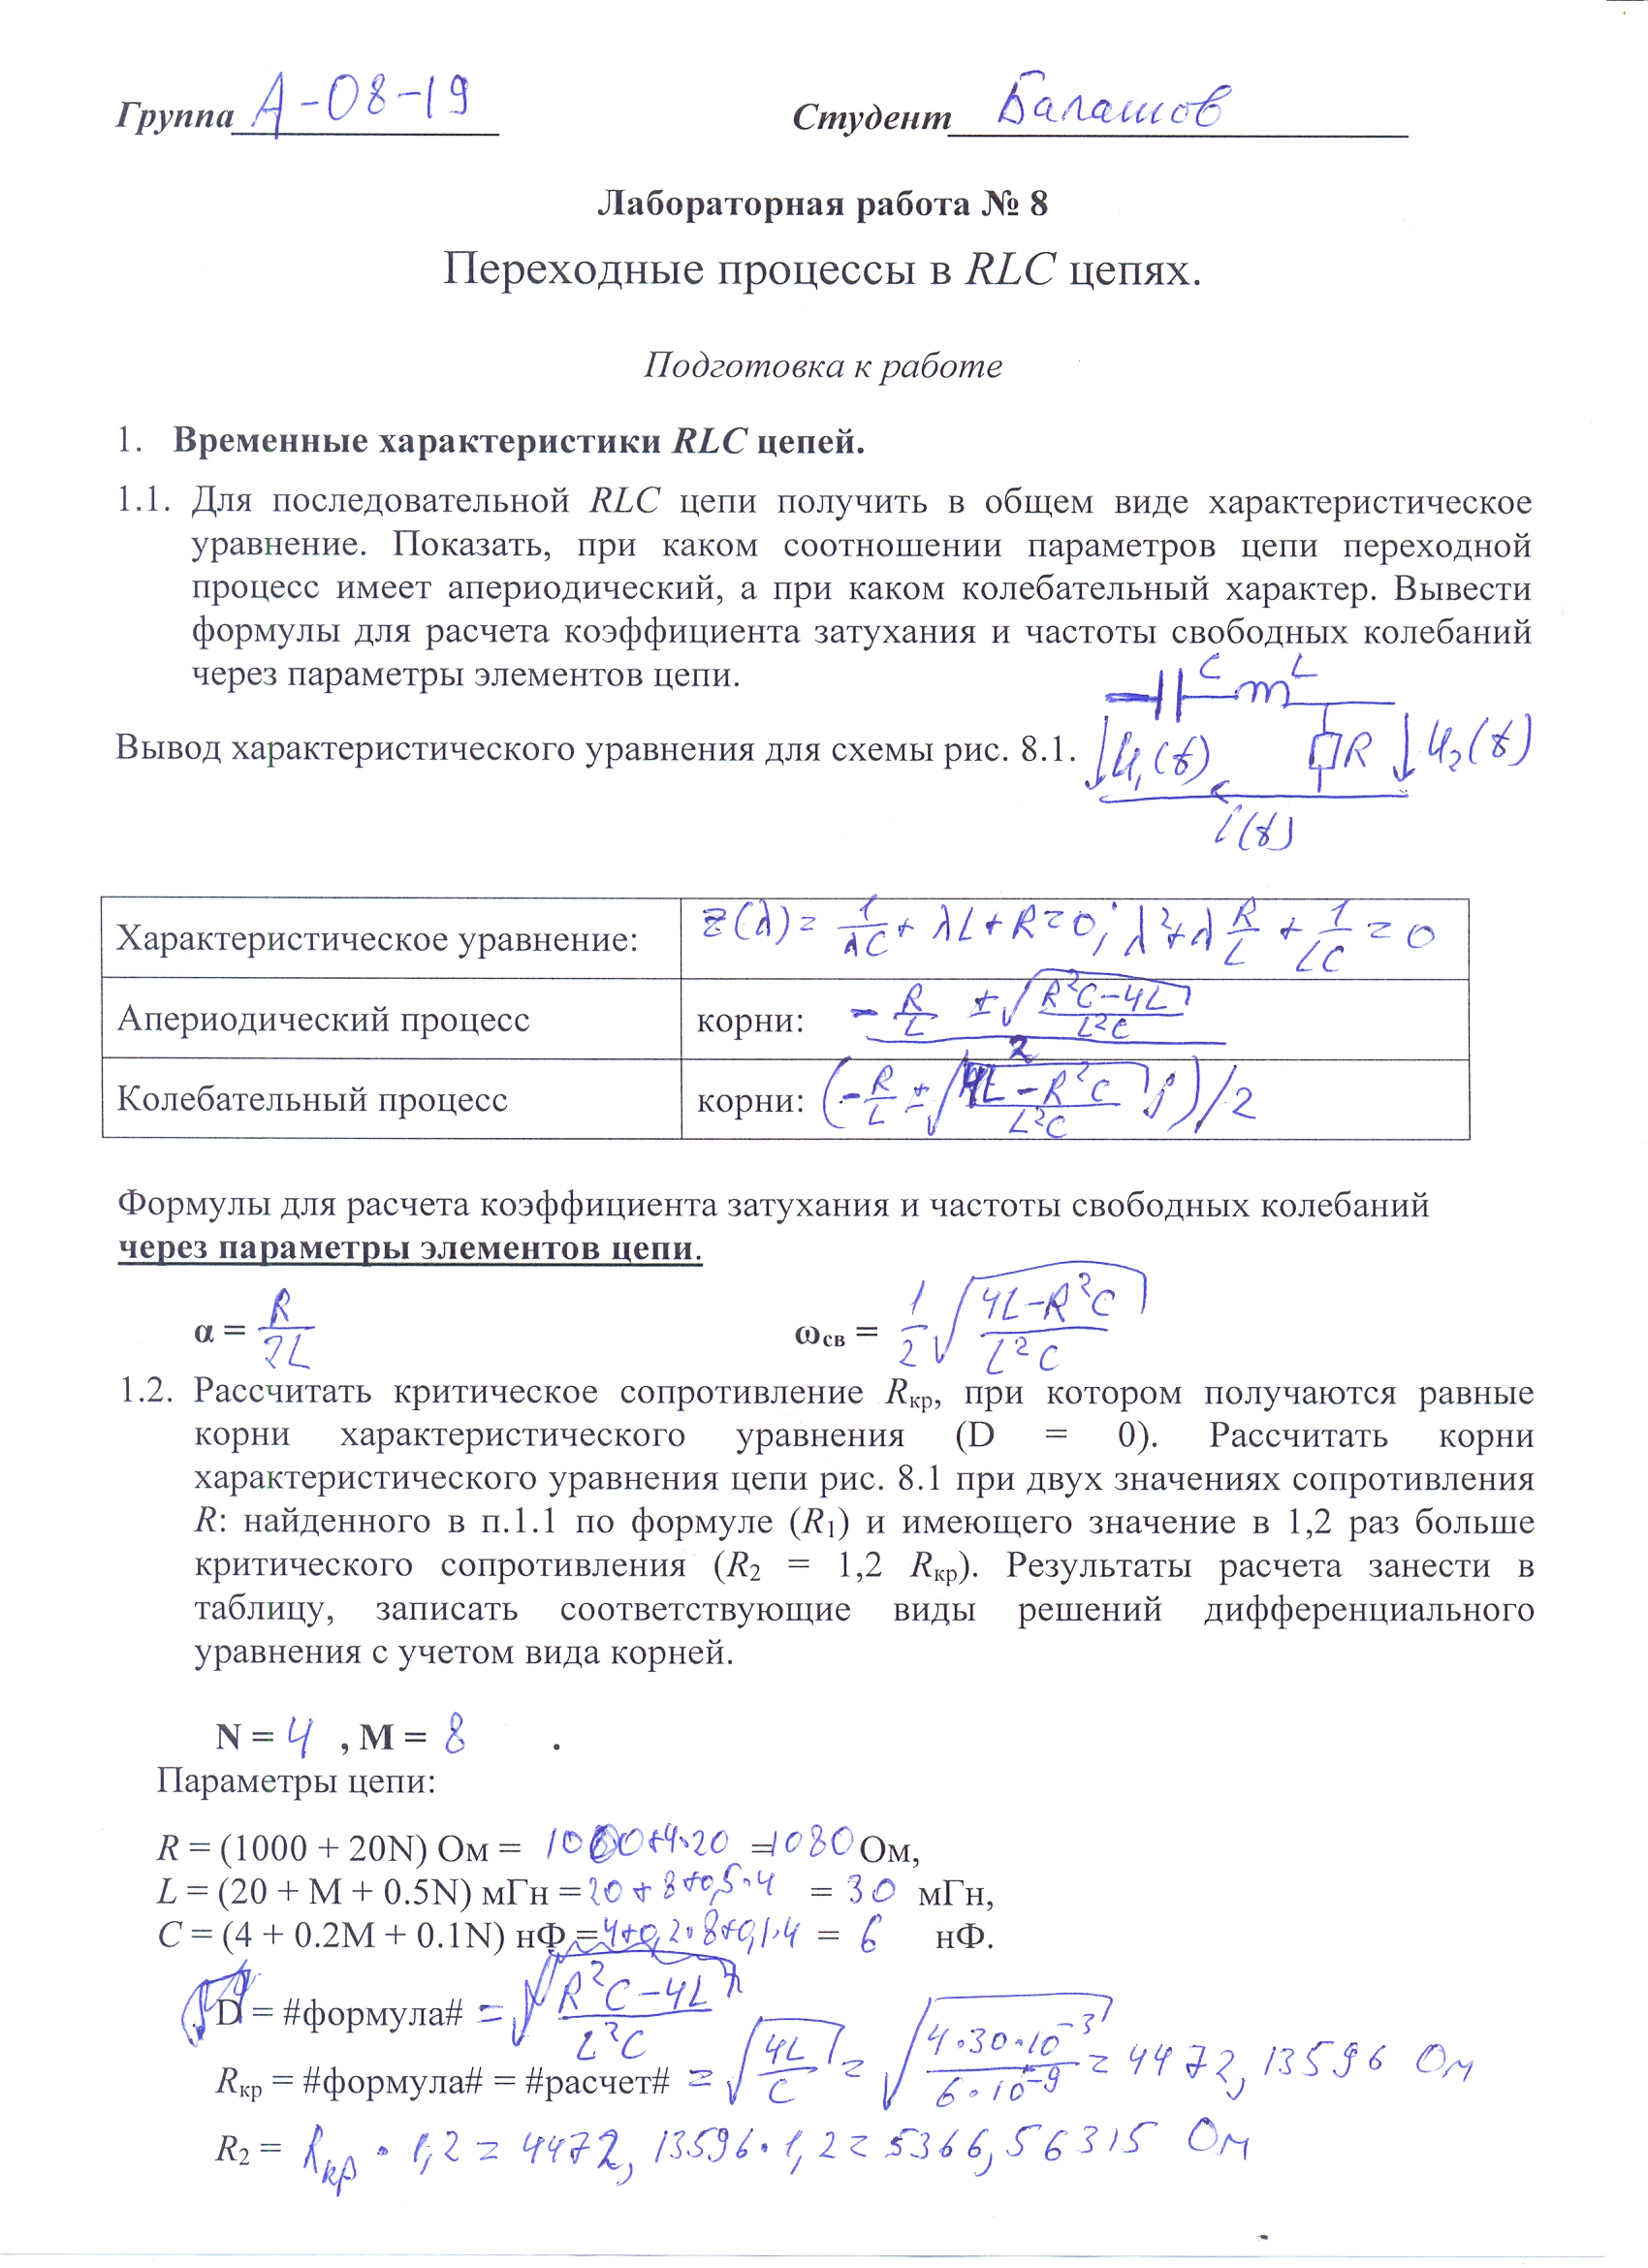 Группа А-08-19 Студент Балашов
Лабораторная работа № 8
Переходные процессы в RLC цепях.
Подготовка к работе
1. Временные характеристики RLC цепей.
1.1. Для последовательной RLC цепи получить в общем виде характеристическое
уравнение. Показать, при каком соотношении параметров цепи переходной
процесс имеет апериодический, а при каком колебательный характер. Вывести
формулы для расчета коэффициента затухания и частоты свободных колебаний
через параметры элементов цепи.
C L
Вывод характеристического уравнения для схемы рис. 8.1. U₁(t) R U₂(t)
i(t)
Характеристическое уравнение: z(λ) = 1/λC + λL + R = 0; λ² + λ R/L + 1/LC = 0
Апериодический процесс корни: (-R/L ± √((R²C-4L)/(L²C)))/2
Колебательный процесс корни: (-R/L ± √((4L-R²C)/(L²C)) j)/2
Формулы для расчета коэффициента затухания и частоты свободных колебаний
через параметры элементов цепи.
α = R/2L ωсв = 1/2 √((4L-R²C)/(L²C))
1.2. Рассчитать критическое сопротивление Rкр, при котором получаются равные
корни характеристического уравнения (D = 0). Рассчитать корни
характеристического уравнения цепи рис. 8.1 при двух значениях сопротивления
R: найденного в п.1.1 по формуле (R₁) и имеющего значение в 1,2 раз больше
критического сопротивления (R₂ = 1,2 Rкр). Результаты расчета занести в
таблицу, записать соответствующие виды решений дифференциального
уравнения с учетом вида корней.
N = 4 , M = 8 .
Параметры цепи:
R = (1000 + 20N) Ом = 1000+4·20 =1080 Ом,
L = (20 + M + 0.5N) мГн = 20+8+0,5·4 = 30 мГн,
C = (4 + 0.2M + 0.1N) нФ = 4+0,2·8+0,1·4 = 6 нФ.
D = #формула# = √((R²C-4L)/(L²C))
Rкр = #формула# = #расчет# = √(4L/C) = √((4·30·10⁻³)/(6·10⁻⁹)) = 4472,13596 Ом
R₂ = Rкр · 1,2 = 4472,13596·1,2 = 5366,56315 Ом